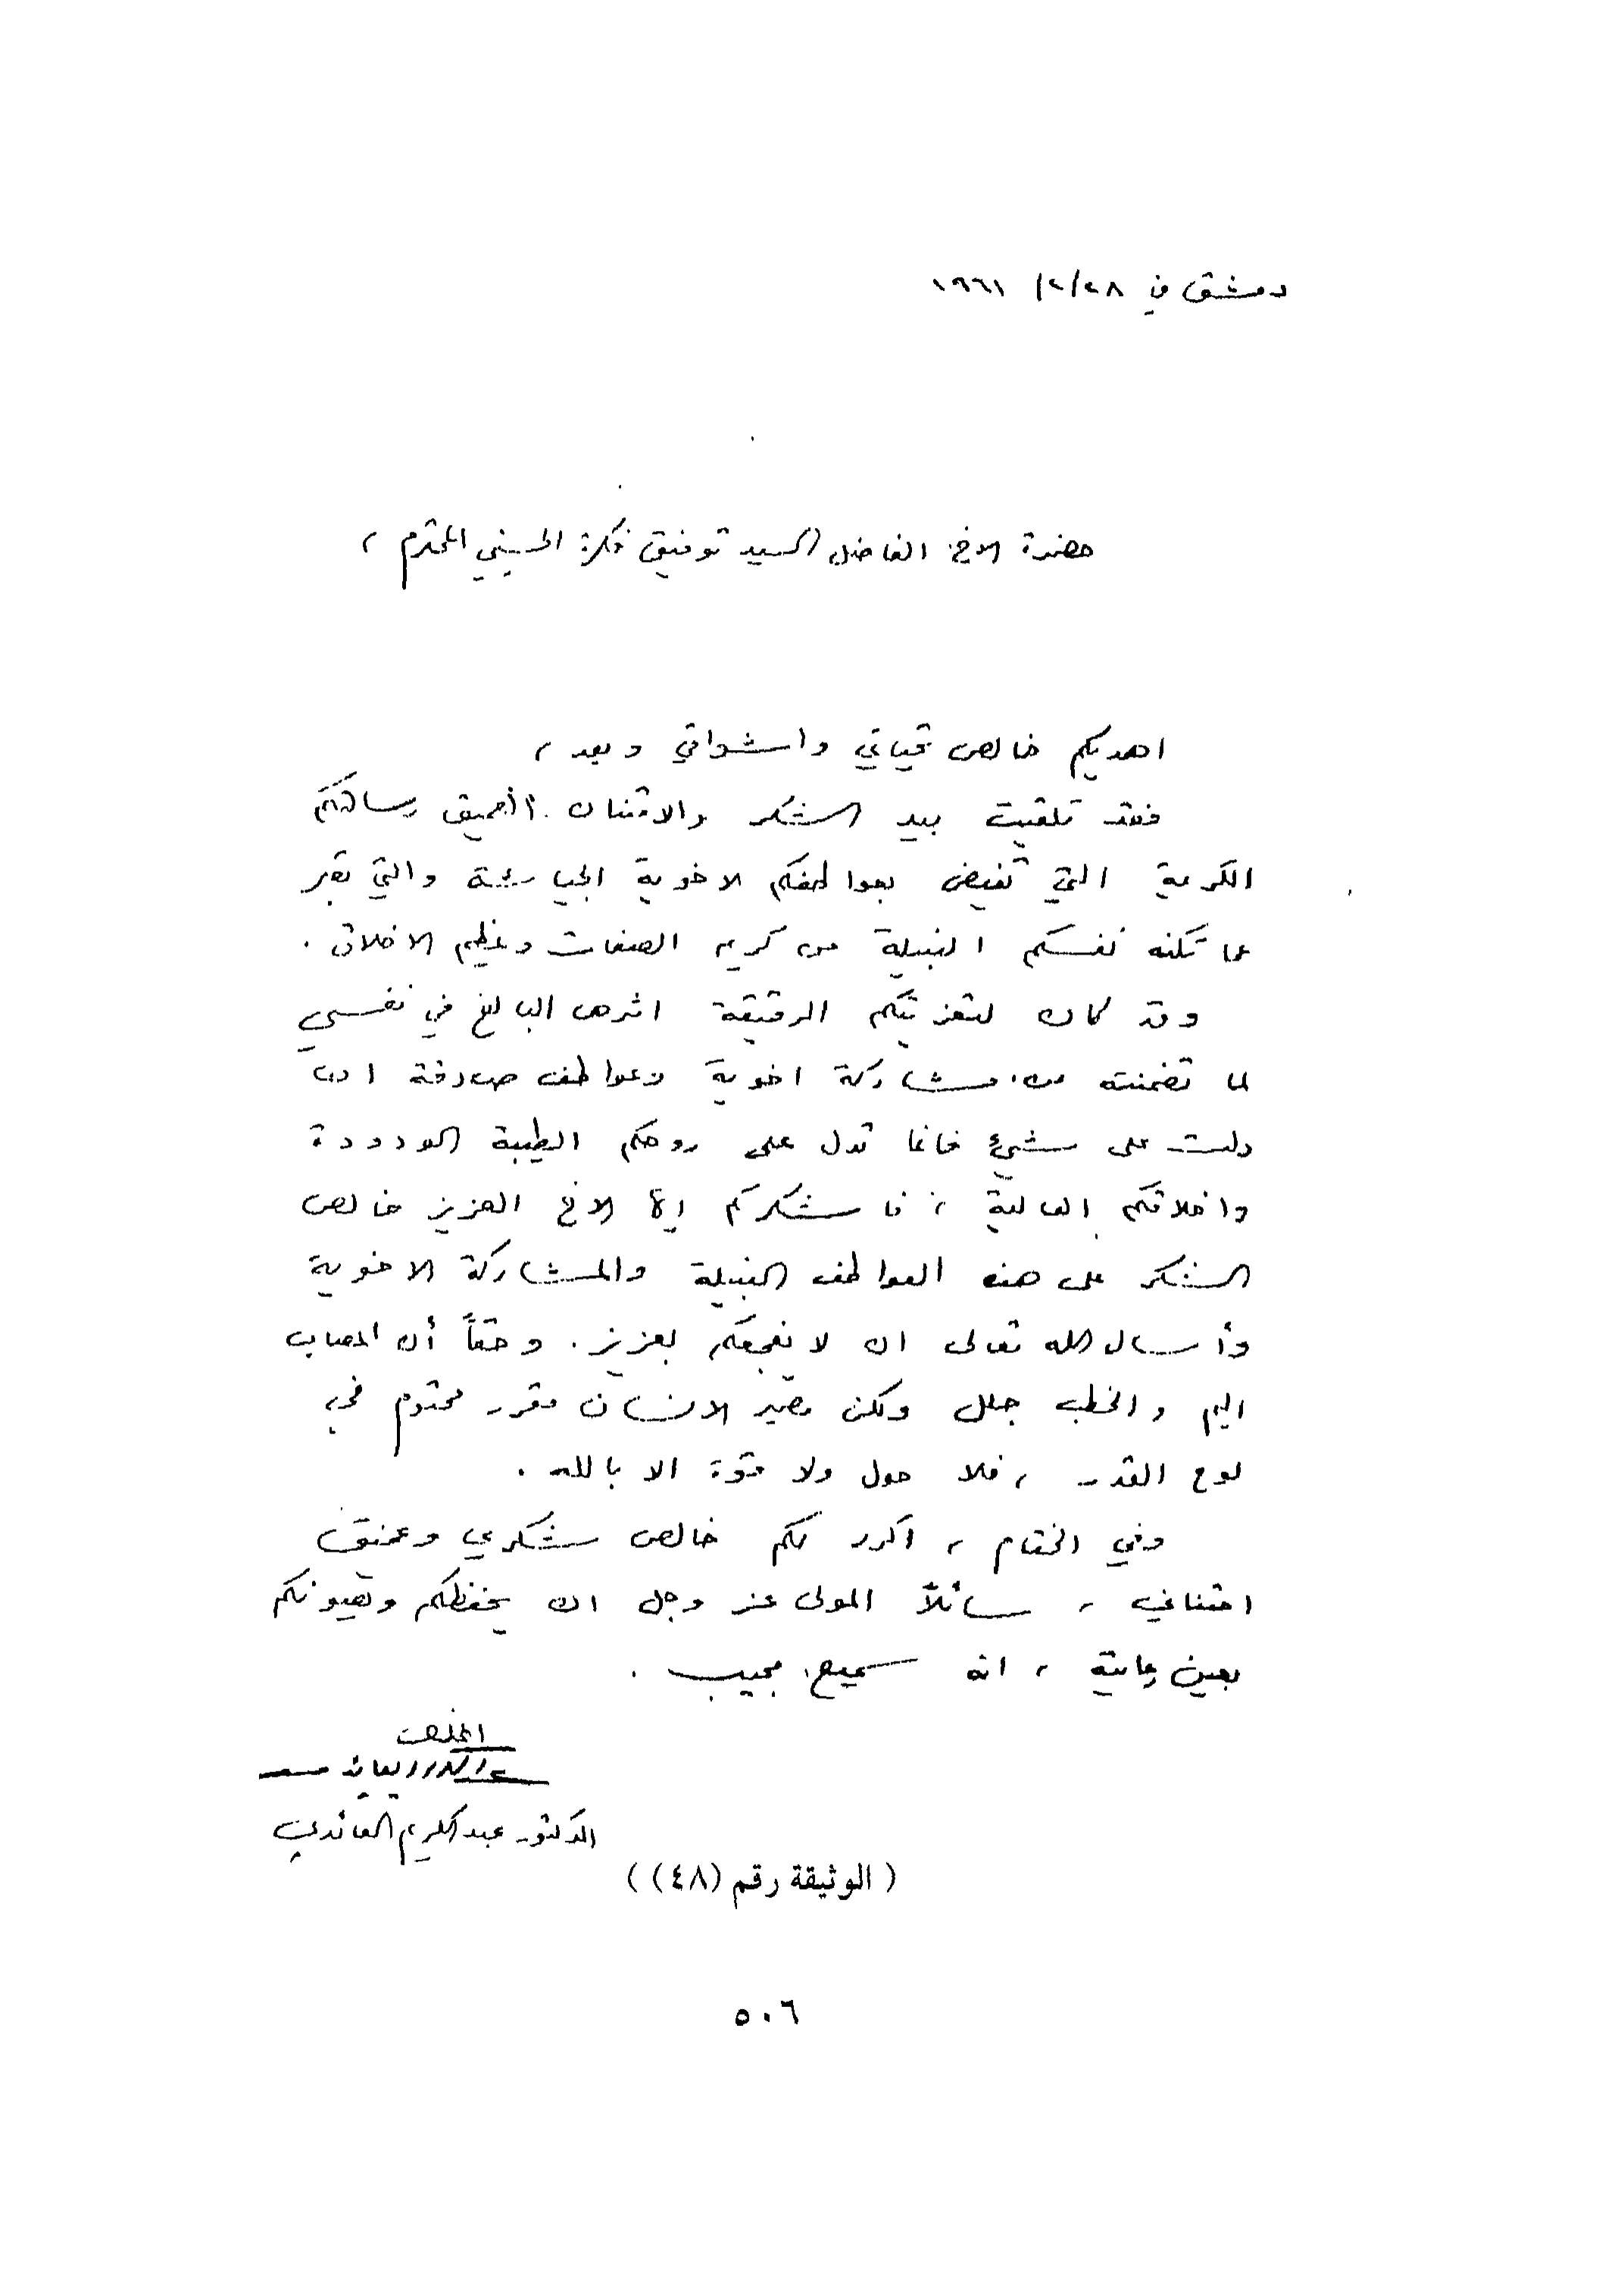 دمشق في ٢٨/٢/ ١٩٦١
حضرة الاخ الفاضل السيد توفيق فكرة الحسيني المحترم ،
اهديكم خالص تحياتي واشواقي وبعد ،
فقد تلقيت بيد الشكر والامتنان العميق رسالتكم
الكريمة التي تفيض بعواطفكم الاخوية الجياشة والتي تعبر
عما تكنه نفسكم النبيلة من كريم الصفات وعظيم الاخلاق .
وقد كان لتعزيتكم الرقيقة اثرها البالغ في نفسي
لما تضمنته من مشاركة اخوية وعواطف صادقة ان
دلت على شيئ فانما تدل على روحكم الطيبة الودودة
واخلاقكم العالية ، فاشكركم ايها الاخ العزيز خالص
الشكر على هذه العواطف النبيلة والمشاركة الاخوية
وأسال الله تعالى ان لا يفجعكم بعزيز . وحقاً أن المصاب
اليم والخطب جلل ولكن مصير الانسان مقرر محتوم في
لوح القدر ، فلا حول ولا قوة الا بالله .
وفي الختام ، اكرر لكم خالص شكري وعميق
امتناني ، سائلاً المولى عز وجل ان يحفظكم ويصونكم
بعين رعايته ، انه سميع مجيب .
المخلص
الدكتور عبد الكريم العائدي
( الوثيقة رقم (٤٨) )
٥٠٦